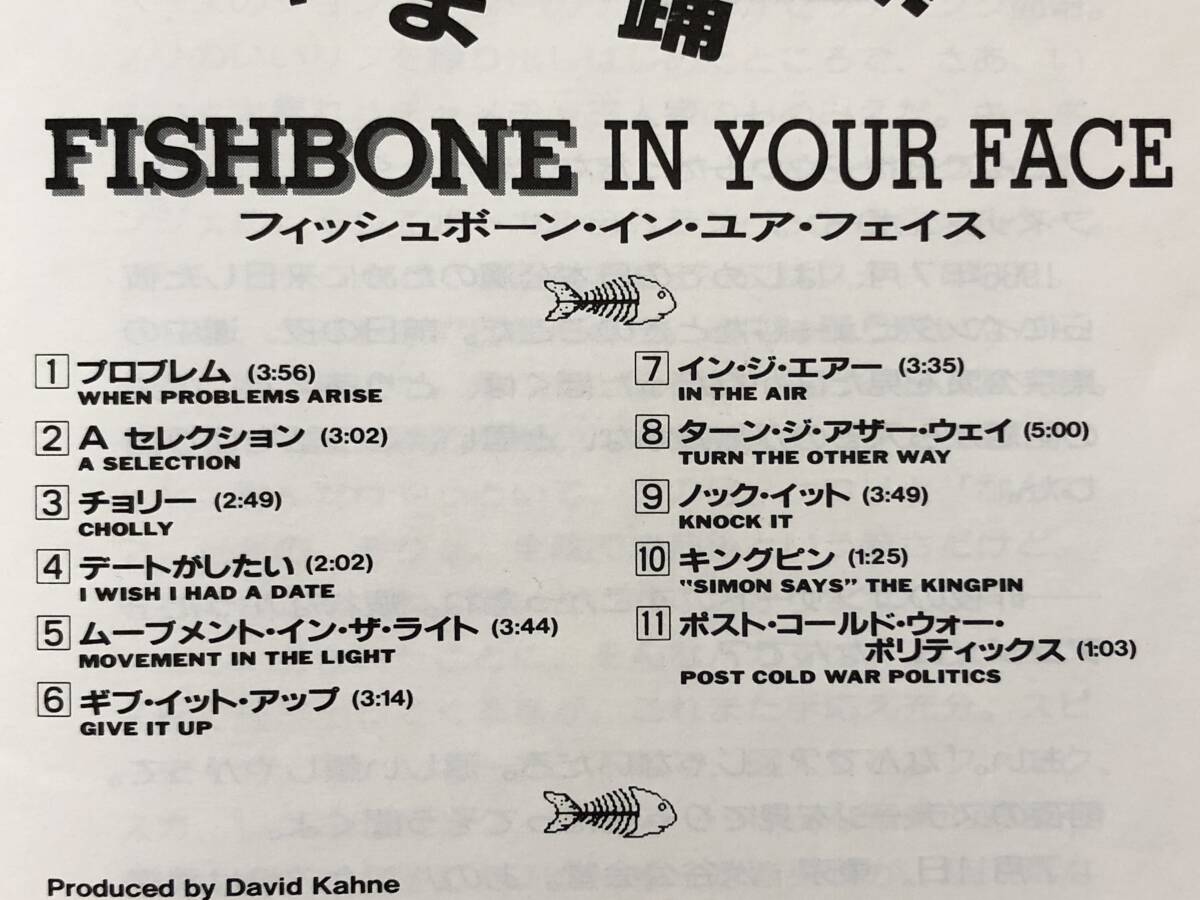 よ 踊
FISHBONE IN YOUR FACE
フィッシュボーン・イン・ユア・フェイス
1 プロブレム (3:56)
WHEN PROBLEMS ARISE
2 A セレクション (3:02)
A SELECTION
3 チョリー (2:49)
CHOLLY
4 デートがしたい (2:02)
I WISH I HAD A DATE
5 ムーブメント・イン・ザ・ライト (3:44)
MOVEMENT IN THE LIGHT
6 ギブ・イット・アップ (3:14)
GIVE IT UP
7 イン・ジ・エアー (3:35)
IN THE AIR
8 ターン・ジ・アザー・ウェイ (5:00)
TURN THE OTHER WAY
9 ノック・イット (3:49)
KNOCK IT
10 キングピン (1:25)
"SIMON SAYS" THE KINGPIN
11 ポスト・コールド・ウォー・
ポリティックス (1:03)
POST COLD WAR POLITICS
Produced by David Kahne